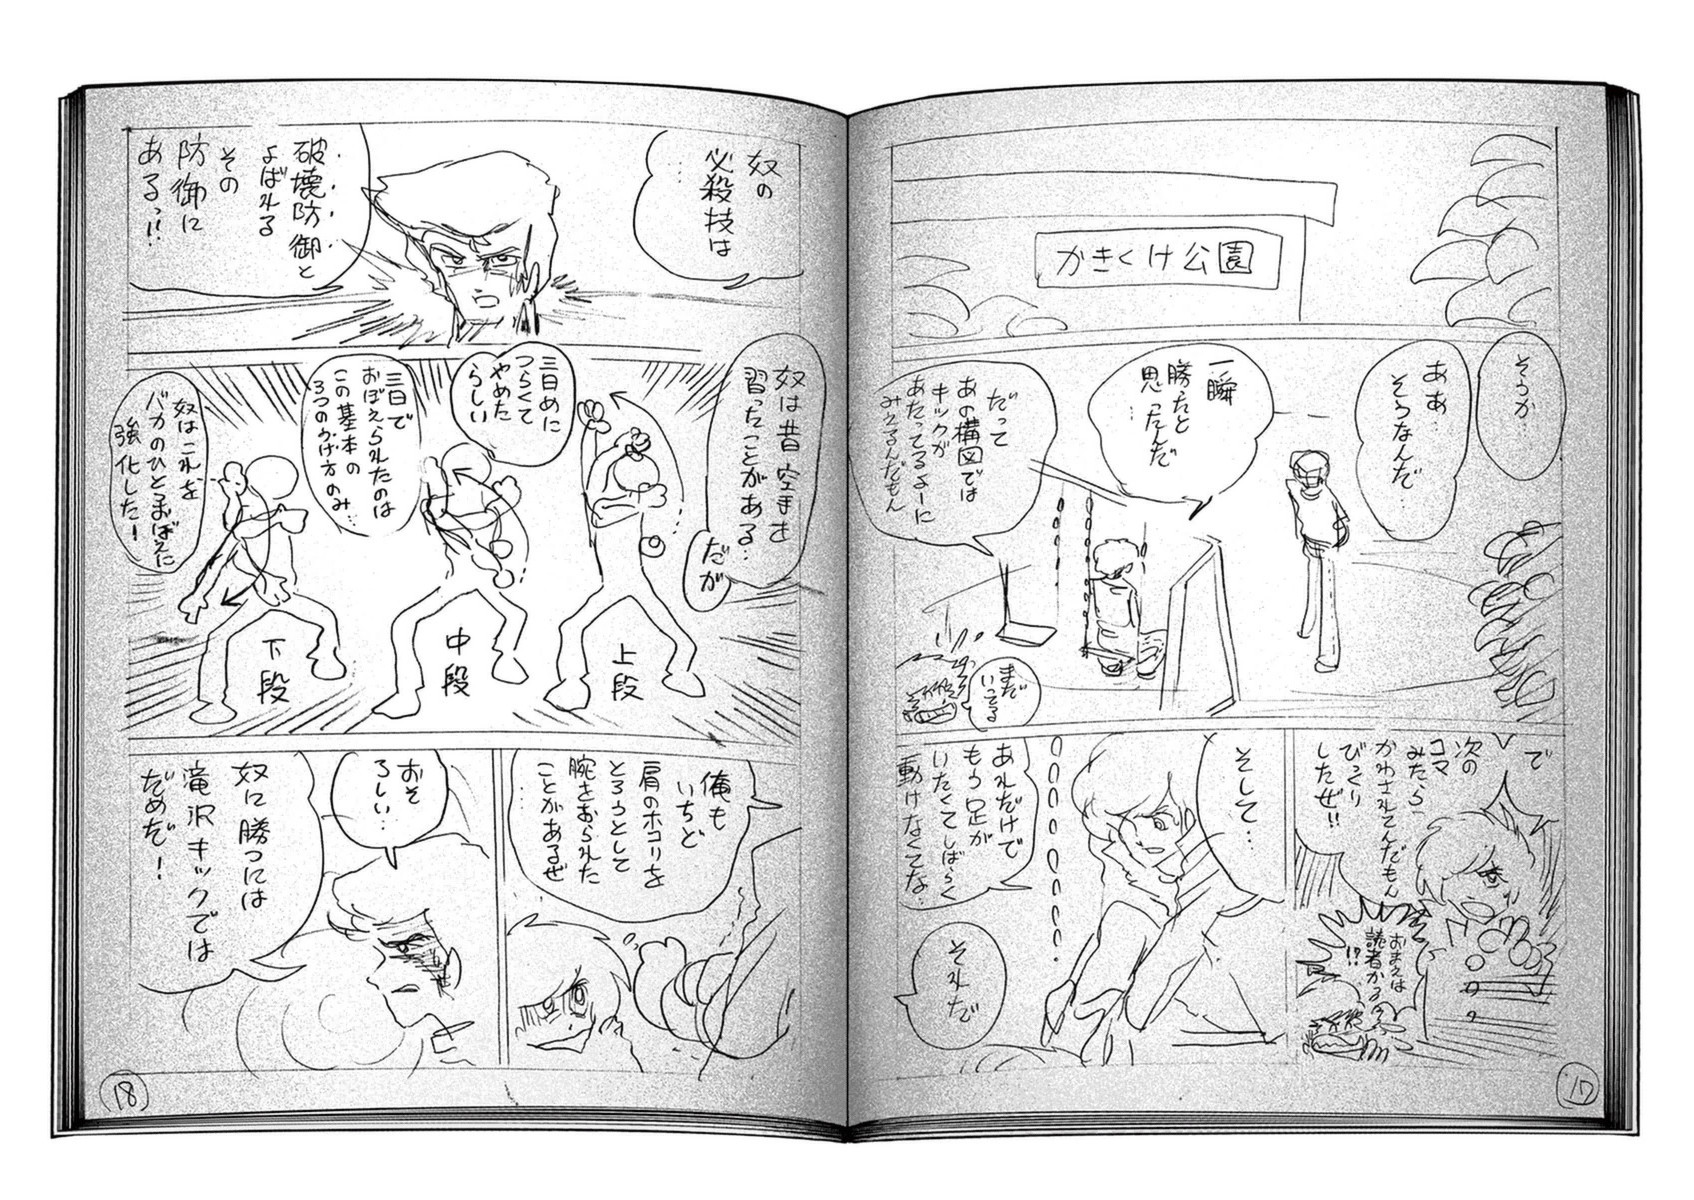 かきくけ公園
そうか…
ああ…
そうなんだ…
一瞬
勝ったと
思ったんだ
だって
あの構図では
キックが
あたってるよーに
みえるんだもん
まだ
いってる
で
次の
コマ
みたら
かわされてんだもん
びっくり
したぜ!!
おまえは
読者かよ
!?
そして…
あれだけで
もう足が
いたくてしばらく
動けなくてな…
それだ
17
奴の
必殺技は
…
破壊防御と
よばれる
その
防御に
ある!!
奴は昔空手を
習ったことがある…
だが
三日めに
つらくて
やめた
らしい
三日で
おぼえられたのは
この基本の
3つのうけ方のみ…
奴はこれを
バカのひとつおぼえに
強化した!
上段
中段
下段
俺も
いちど
肩のホコリを
とろうとして
腕をおられた
ことがあるぜ
…
おそ
ろしい…
奴に勝つには
滝沢キックでは
だめだ!
18